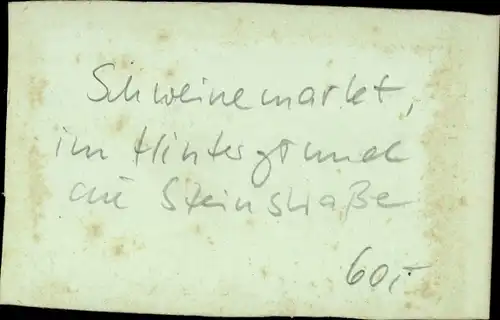 Schweinemarkt,
im Hintergrund
die Steinstraße
60,-